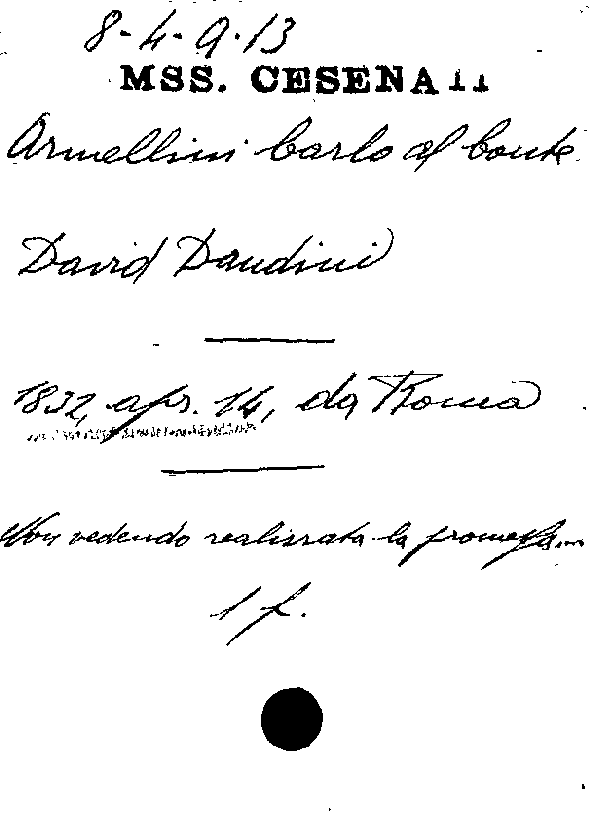 8-4-9-13
MSS. CESENA II
Armellini Carlo al Conte
David Dandini
1832, apr. 14, da Roma
Non vedendo realizzata la promessa...
1 f.